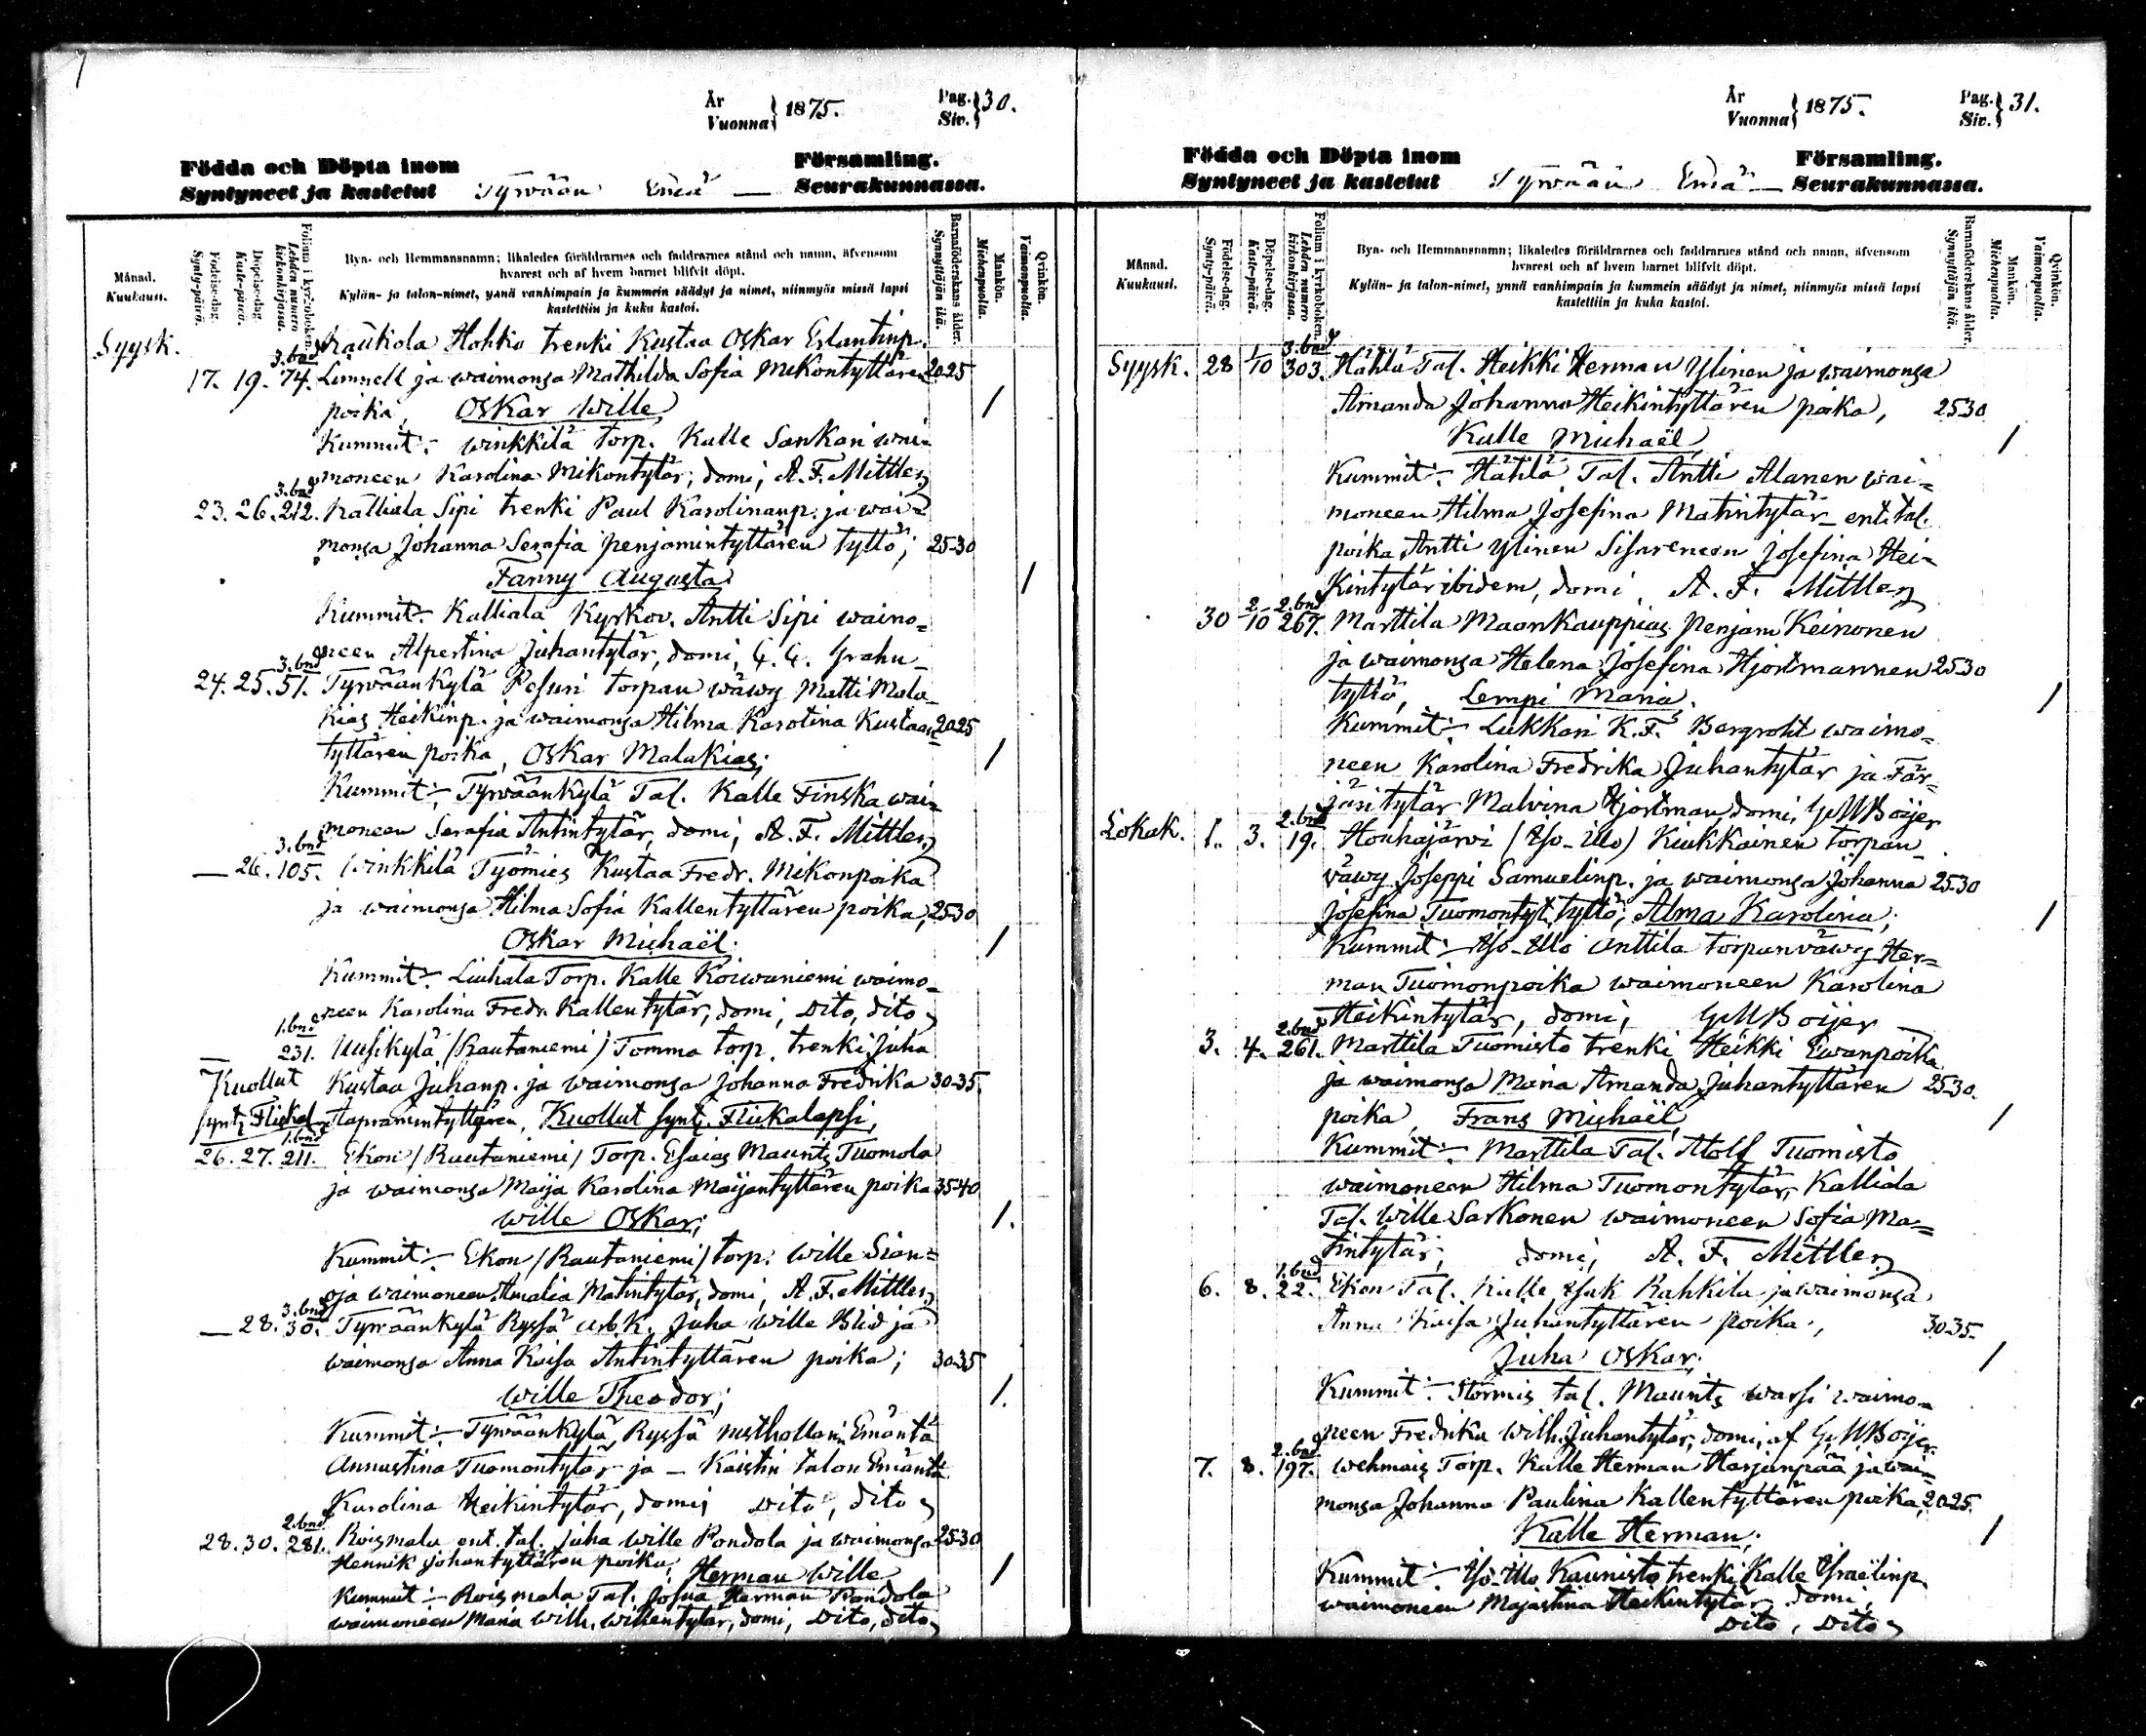 År
Vuonna } 1875.
Pag.
Siv. } 30.
Födda och Döpta inom
Syntyneet ja kastetut Tyrwään Emä — Församling.
Seurakunnassa.
Månad.
Kuukausi.
Födelse-dag.
Synty-päivä.
Döpelse-dag.
Kaste-päivä.
Folium i kyrkoboken.
Lehden numero kirkonkirjassa.
Bya- och Hemmansnamn; likaledes föräldrarnes och faddrarnes stånd och namn, äfvensom
hvarest och af hvem barnet blifvit döpt.
Kylän- ja talon-nimet, ynnä vanhimpain ja kummein säädyt ja nimet, niinmyös missä lapsi
kastettiin ja kuka kastoi.
Barnaföderskans ålder.
Synnyttäjän ikä.
Mankön.
Miehenpuolia.
Qvinkön.
Vaimonpuolia.
Syysk. Hohko trenki Kustaa Oskar Erlantinp.
17. 19. 3. bnd 74. Linnell ja waimonsa Mathilda Sofia Mikontyttären 20-25
poika, Oskar Wille /
Kummit:- Winkkilä torp. Kalle Sankari wai=
moneen Karolina Mikontytär, domi, A. F. Mittler,
23. 26. 3. bnd 212. Kalliala Sipi trenki Paul Karolinanp. ja wai=
monsa Johanna Serafia Penjamintyttären tyttö; 25-30
Fanny Augusta /
Kummit:- Kalliala Kyrkov. Antti Sipi waimo=
neen Alpertina Juhantytär, domi, G. G. Grahn
24. 25. 3. bnd 51. Tyrwäänkylä Pesuri torpan wäwy Matti Mala=
kias Heikinp. ja waimonsa Hilma Karolina Kustaan= 20-25
tyttären poika, Oskar Malakias; /
Kummit:- Tyrwäänkylä Tal. Kalle Finska wai=
moneen Serafia Antintytär, domi, A. F. Mittler,
— 26. 3. bnd 105. Winkkilä Työmies Kustaa Fredr. Mikonpoika
ja waimonsa Hilma Sofia Kallentyttären poika, 25-30
Oskar Michaël. /
Kummit:- Liuhala Torp. Kalle Koiwuniemi waimo=
neen Karolina Fredr. Kallentytär, domi, Dito, dito,
1. bnd 231. Uusikylä (Rautaniemi) Tomma torp. trenki Juha
Kuollut Kustaa Juhanp. ja waimonsa Johanna Fredrika 30-35.
synt. Flickal. Aapramintyttären, Kuollut synt. Flickalapsi,
26. 27. 1. bnd 211. Ekon (Rautaniemi) Torp. Esaias Maunts Tuomola
ja waimonsa Maija Karolina Maijantyttären poika 35-40
Wille Oskar; /.
Kummit:- Ekon (Rautaniemi) torp. Wille Sian=
oja waimoneen Amalia Matintytär, domi, A. F. Mittler,
— 28. 3. bnd 30. Tyrwäänkylä Ryssä arb.k. Juha Wille Blid ja
waimonsa Anna Kaisa Antintyttären poika; 30-35
Wille Theodor; /.
Kummit:- Tyrwäänkylä Ryssä rusthollarin Emäntä
Annastina Tuomontytär ja — Kaistin talon Emäntä
Karolina Heikintytär, domi, Dito, dito,
28. 30. 2. bnd 281. Roismala ent. tal. Juha Wille Pondola ja waimonsa 25-30
Hennik Johantyttären poika; Herman Wille /
Kummit:- Roismala Tal. Josua Herman Pondola
waimoneen Maria Wilh. Willentytär, domi, Dito, dito,
År
Vuonna } 1875.
Pag.
Siv. } 31.
Födda och Döpta inom
Syntyneet ja kastetut Tyrwään Emä — Församling.
Seurakunnassa.
Månad.
Kuukausi.
Födelse-dag.
Synty-päivä.
Döpelse-dag.
Kaste-päivä.
Folium i kyrkoboken.
Lehden numero kirkonkirjassa.
Bya- och Hemmansnamn; likaledes föräldrarnes och faddrarnes stånd och namn, äfvensom
hvarest och af hvem barnet blifvit döpt.
Kylän- ja talon-nimet, ynnä vanhimpain ja kummein säädyt ja nimet, niinmyös missä lapsi
kastettiin ja kuka kastoi.
Barnaföderskans ålder.
Synnyttäjän ikä.
Mankön.
Miehenpuolia.
Qvinkön.
Vaimonpuolia.
Syysk. 28 1/10 3. bnd 303. Hählä Tal. Heikki Herman Ylinen ja waimonsa
Amanda Johanna Heikintyttären poika, 25-30
Kalle Michaël /
Kummit:- Hähtä Tal. Antti Alanen wai=
moneen Hilma Josefina Matintytär — ent. tal.
poika Antti Ylinen Sisarensa Josefina Hei=
kintytär ibidem, domi, A. F. Mittler,
30 2/10 2. bnd 267. Marttila Maankauppias Penjam Keinonen
ja waimonsa Helena Josefina Hjortmannen 25-30
tyttö, Lempi Maria. /
Kummit:- Lukkari K. F. Bergroth waimo=
neen Karolina Fredrika Juhantytär ja Fär=
järitytär Malvina Hjortman, domi, G M Boijer
Lokak. 1. 3. 2. bnd 19. Houhajärwi (Iso-Ulo) Kiukkainen torpan
väwy Joseppi Samuelinp. ja waimonsa Johanna 25-30
Josefina Tuomontyt. tyttö; Alma Karolina; /
Kummit:- Iso-Ulo Anttila torpanväwy Her=
man Tuomonpoika waimoneen Karolina
Heikintytär, domi, G M Boijer
3. 4. 2. bnd 261. Marttila Tuomisto trenki Heikki Ewanpoika
ja waimonsa Maria Amanda Juhantyttären 25-30.
poika, Frans Michaël /
Kummit:- Marttila Tal. Atolf Tuomisto
waimoneen Hilma Tuomontytär, Kalliala
Tal. Wille Sarkonen waimoneen Sofia Ma=
tintytär; domi, A. F. Mittler,
6. 8. 1. bnd 22. Ekon Tal. Kalle Isak Rahkila ja waimonsa
Anna Kaisa Juhantyttären poika, 30-35.
Juha Oskar; /
Kummit:- Stormis tal. Maunts Warsi waimo=
neen Fredrika Wilh. Juhantytär, domi, af G M Boijer.
7. 8. 2. bnd 197. Wehmais Torp. Kalle Herman Harjunpää ja wai=
monsa Johanna Paulina Kallentyttären poika, 20-25.
Kalle Herman; /
Kummit:- Iso-Ulo Kaunisto trenki Kalle Israëlinp.
waimoneen Majastina Heikintytär, domi,
Dito, Dito,